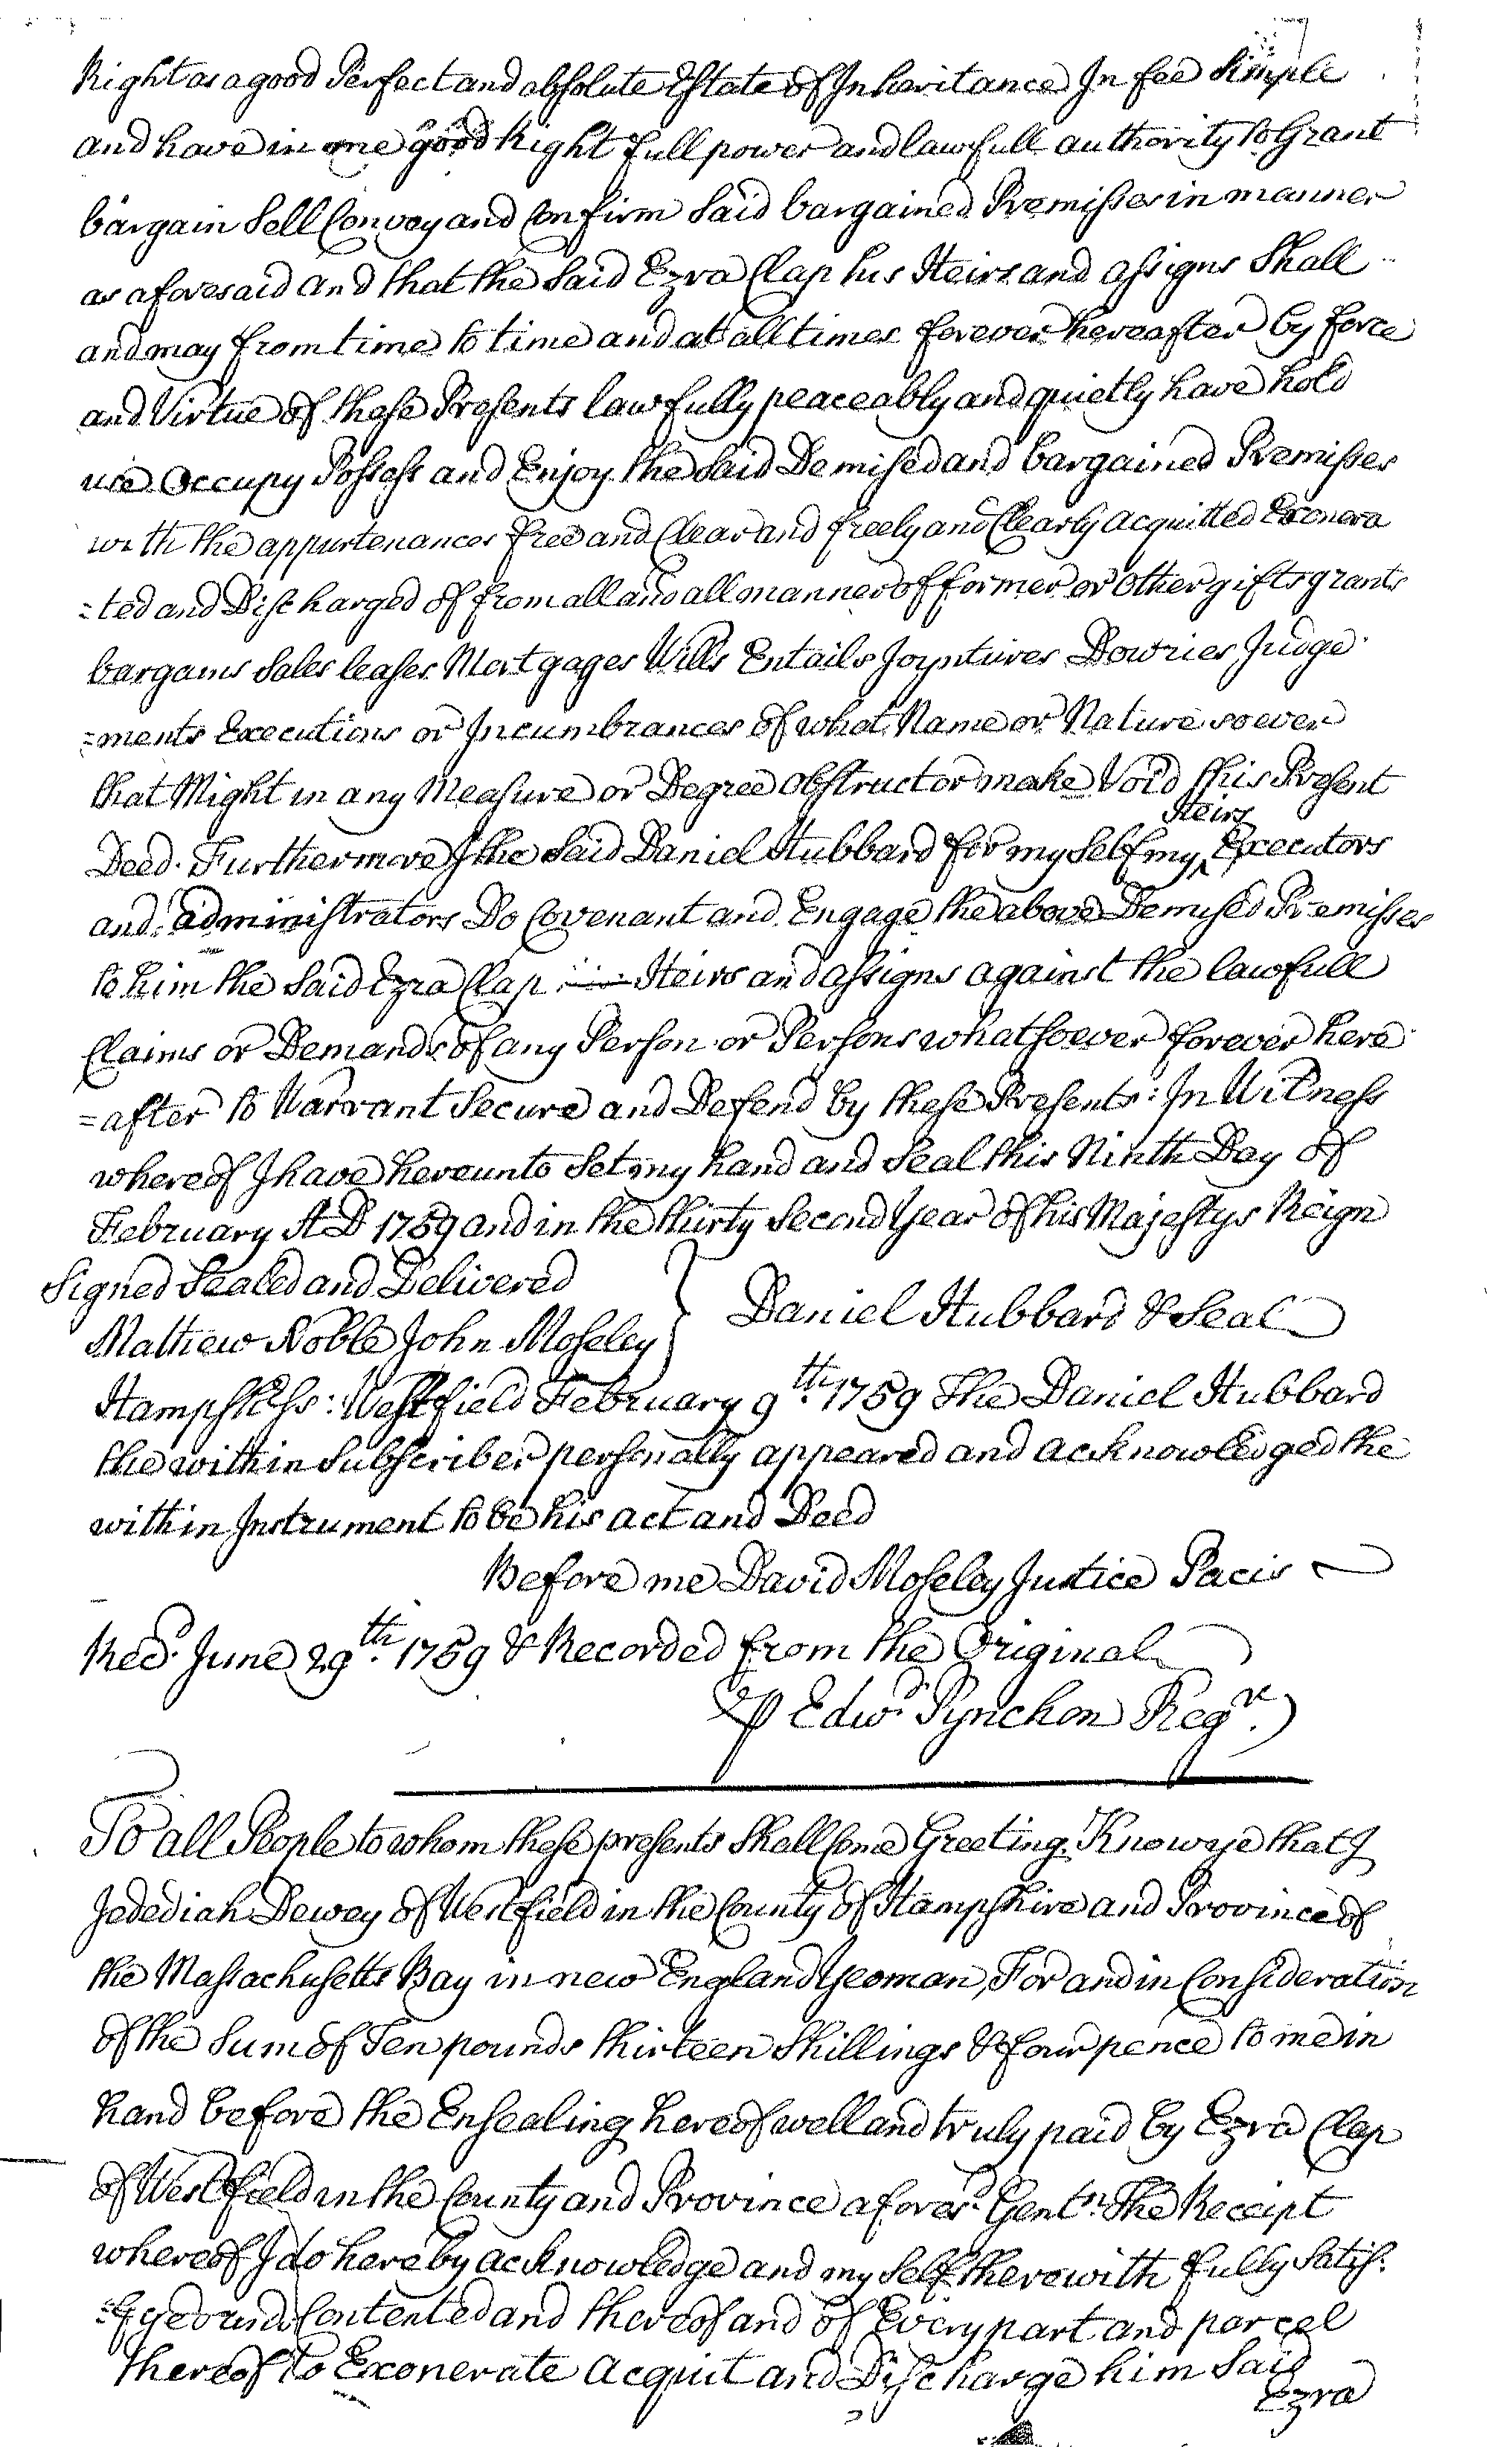 Right as a good Perfect and absolute Estate of Inheritance In fee Simple
and have in me good Right full power and lawfull authority to Grant
bargain Sell Convey and Confirm Said bargained Premisses in manner
as aforesaid and that the Said Ezra Clap his Heirs and assigns Shall
and may from time to time and at all times forever hereafter by force
and Virtue of these Presents lawfully peaceably and quietly have hold
use Occupy Possess and Enjoy the Said Demised and bargained Premisses
with the appurtenances free and Clear and freely and Clearly acquitted Exonera
=ted and Discharged of from all and all manner of former or other gifts grants
bargains Sales leases Mortgages Wills Entails Joyntures Dowries Judge
=ments Executions or Incumbrances of what Name or Nature soever
that Might in any Measure or Degree obstruct or make Void this Present
Deed. Furthermore I the Said Daniel Hubbard for my Self my ^Heirs Executors
and administrators Do Covenant and Engage the above Demised Premisses
to him the Said Ezra Clap Heirs and assigns against the lawfull
Claims or Demands of any Person or Persons whatsoever forever here
=after to Warrant Secure and Defend by these Presents: In Witness
whereof I have hereunto Set my hand and Seal this Ninth Day of
February A D 1759 and in the thirty Second Year of his Majestys Reign
Signed Sealed and Delivered
Mathew Noble John Moseley } Daniel Hubbard & Seal
Hampshss: Westfield February 9th. 1759 The Daniel Hubbard
the within Subscriber personally appeared and acknowledged the
within Instrument to be his act and Deed
Before me David Moseley Justice Pacis
Recd. June 29th. 1759 & Recorded from the Original
℗ Edwd. Pynchon Regr.
To all People to whom these presents Shall Come Greeting. Know ye that I
Jedediah Dewey of Westfield in the County of Hampshire and Province of
the Massachusetts Bay in new England Yeoman, For and in Consideration
of the Sum of Ten pounds thirteen Shillings & four pence to me in
hand before the Ensealing hereof well and truly paid by Ezra Clap
of Westfield in the County and Province aforesd. Gentn. The Receipt
whereof I do hereby acknowledge and my Self therewith fully Satis.
=fyed and Contented and thereof and of Every part and parcel
thereof to Exonerate acquit and Discharge him Said
Ezra